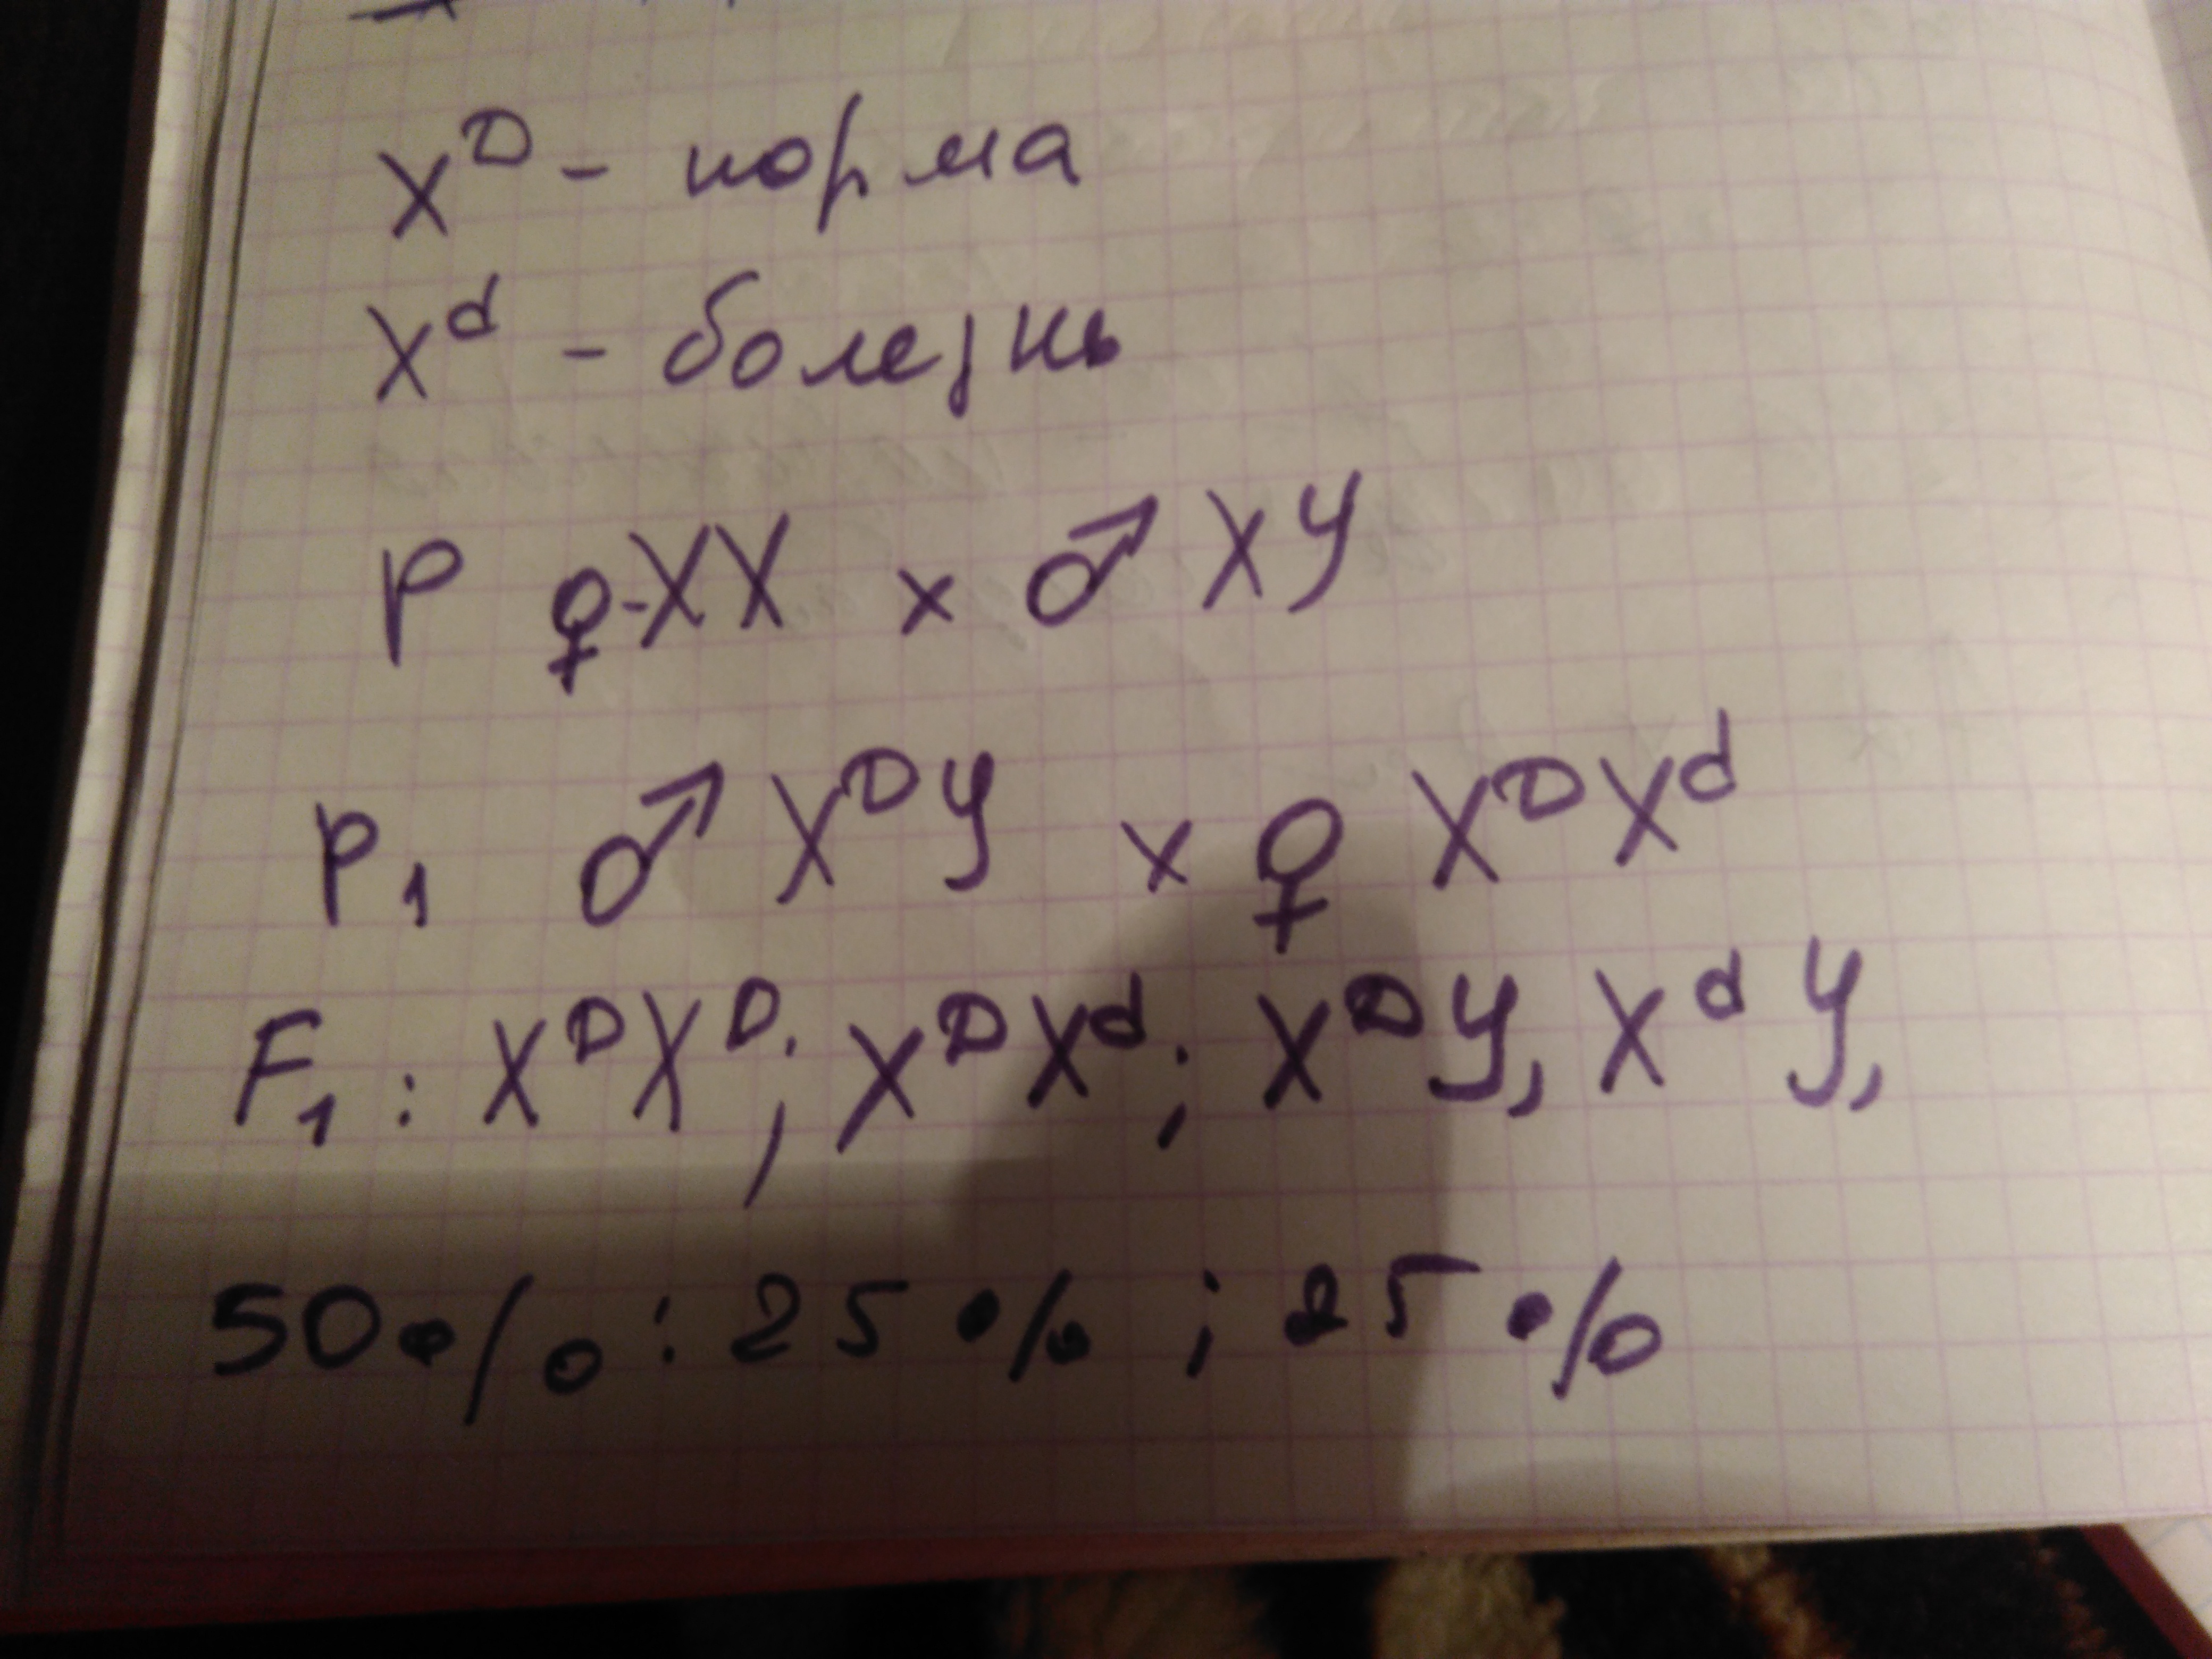 X^D - норма
X^d - болезнь
P ♀-XX x ♂ XY
P₁ ♂ X^D Y x ♀ X^D X^d
F₁: X^D X^D; X^D X^d; X^D Y, X^d Y,
50% : 25% ; 25%